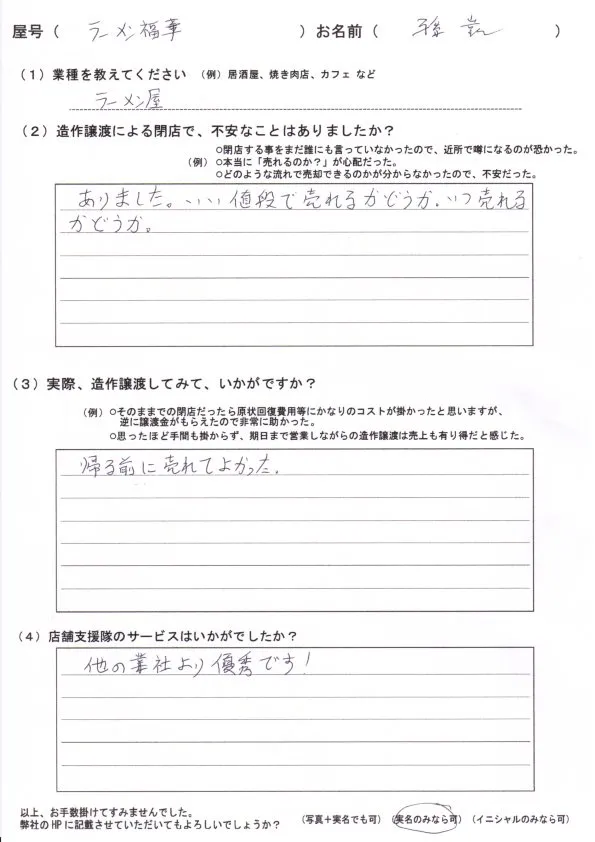 屋号（ ラーメン福華 ）お名前（ 孫 ）
（1）業種を教えてください （例）居酒屋、焼き肉店、カフェ など
ラーメン屋
（2）造作譲渡による閉店で、不安なことはありましたか？
○閉店する事をまだ誰にも言っていなかったので、近所で噂になるのが恐かった。
（例）○本当に「売れるのか？」が心配だった。
○どのような流れで売却できるのかが分からなかったので、不安だった。
ありました。いい値段で売れるかどうか、いつ売れる
かどうか。
（3）実際、造作譲渡してみて、いかがですか？
（例）○そのままでの閉店だったら原状回復費用等にかなりのコストが掛かったと思いますが、
逆に譲渡金がもらえたので非常に助かった。
○思ったほど手間も掛からず、期日まで営業しながらの造作譲渡は売上も有り得だと感じた。
帰る前に売れてよかった。
（4）店舗支援隊のサービスはいかがでしたか？
他の業社より優秀です！
以上、お手数掛けてすみませんでした。
弊社のHPに記載させていただいてもよろしいでしょうか？ （写真＋実名でも可）（実名のみなら可）（イニシャルのみなら可）